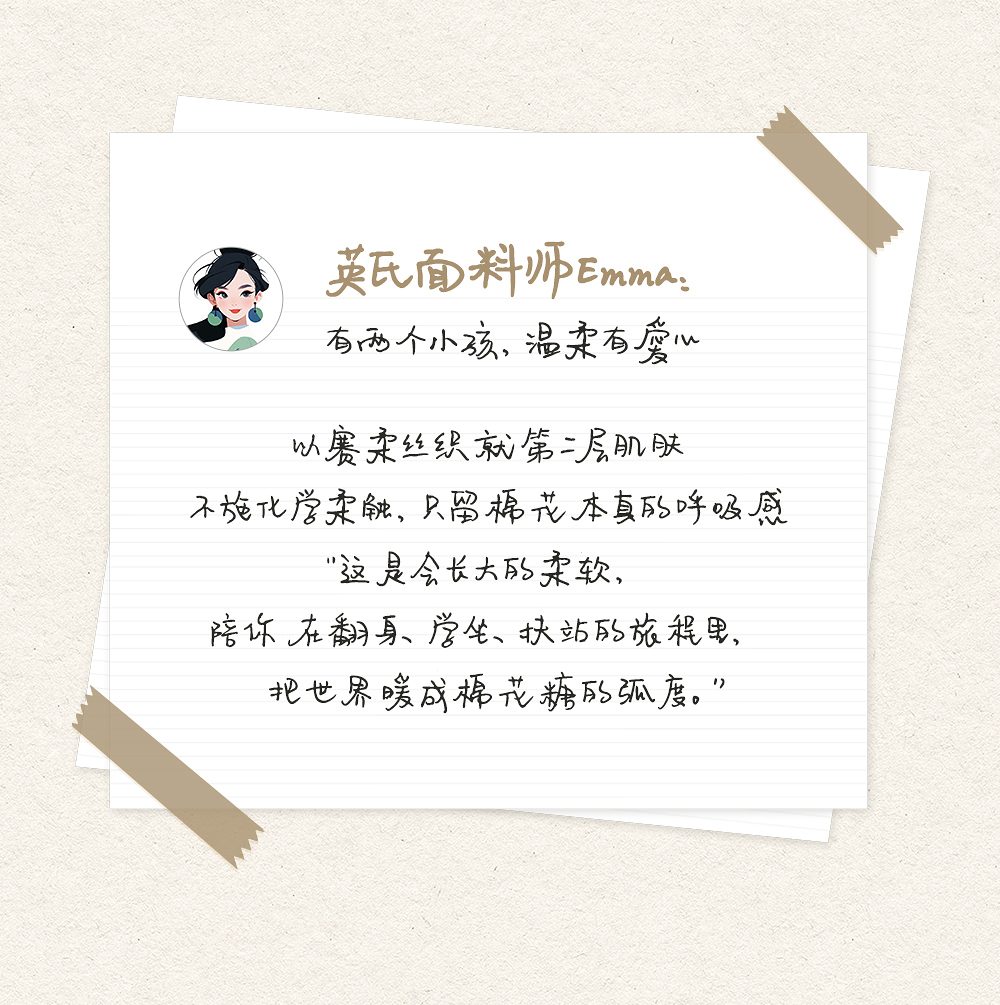 英氏面料师Emma:
有两个小孩,温柔有爱心
以赛柔丝织就第二层肌肤
不施化学柔触,只留棉花本真的呼吸感
"这是会长大的柔软,
陪你在翻身、学坐、扶站的旅程里,
把世界暖成棉花糖的弧度。"